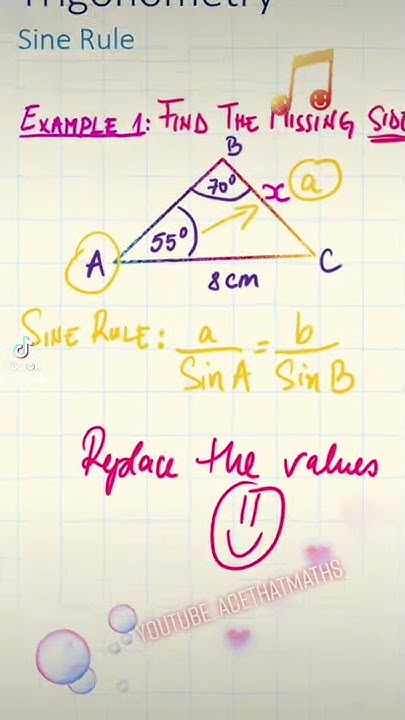 Trigonometry
Sine Rule
EXAMPLE 1: FIND THE MISSING SIDE
B
70°
x a
55°
A
C
8cm
SINE RULE: a/Sin A = b/Sin B
Replace the values
YOUTUBE ACETHATMATHS